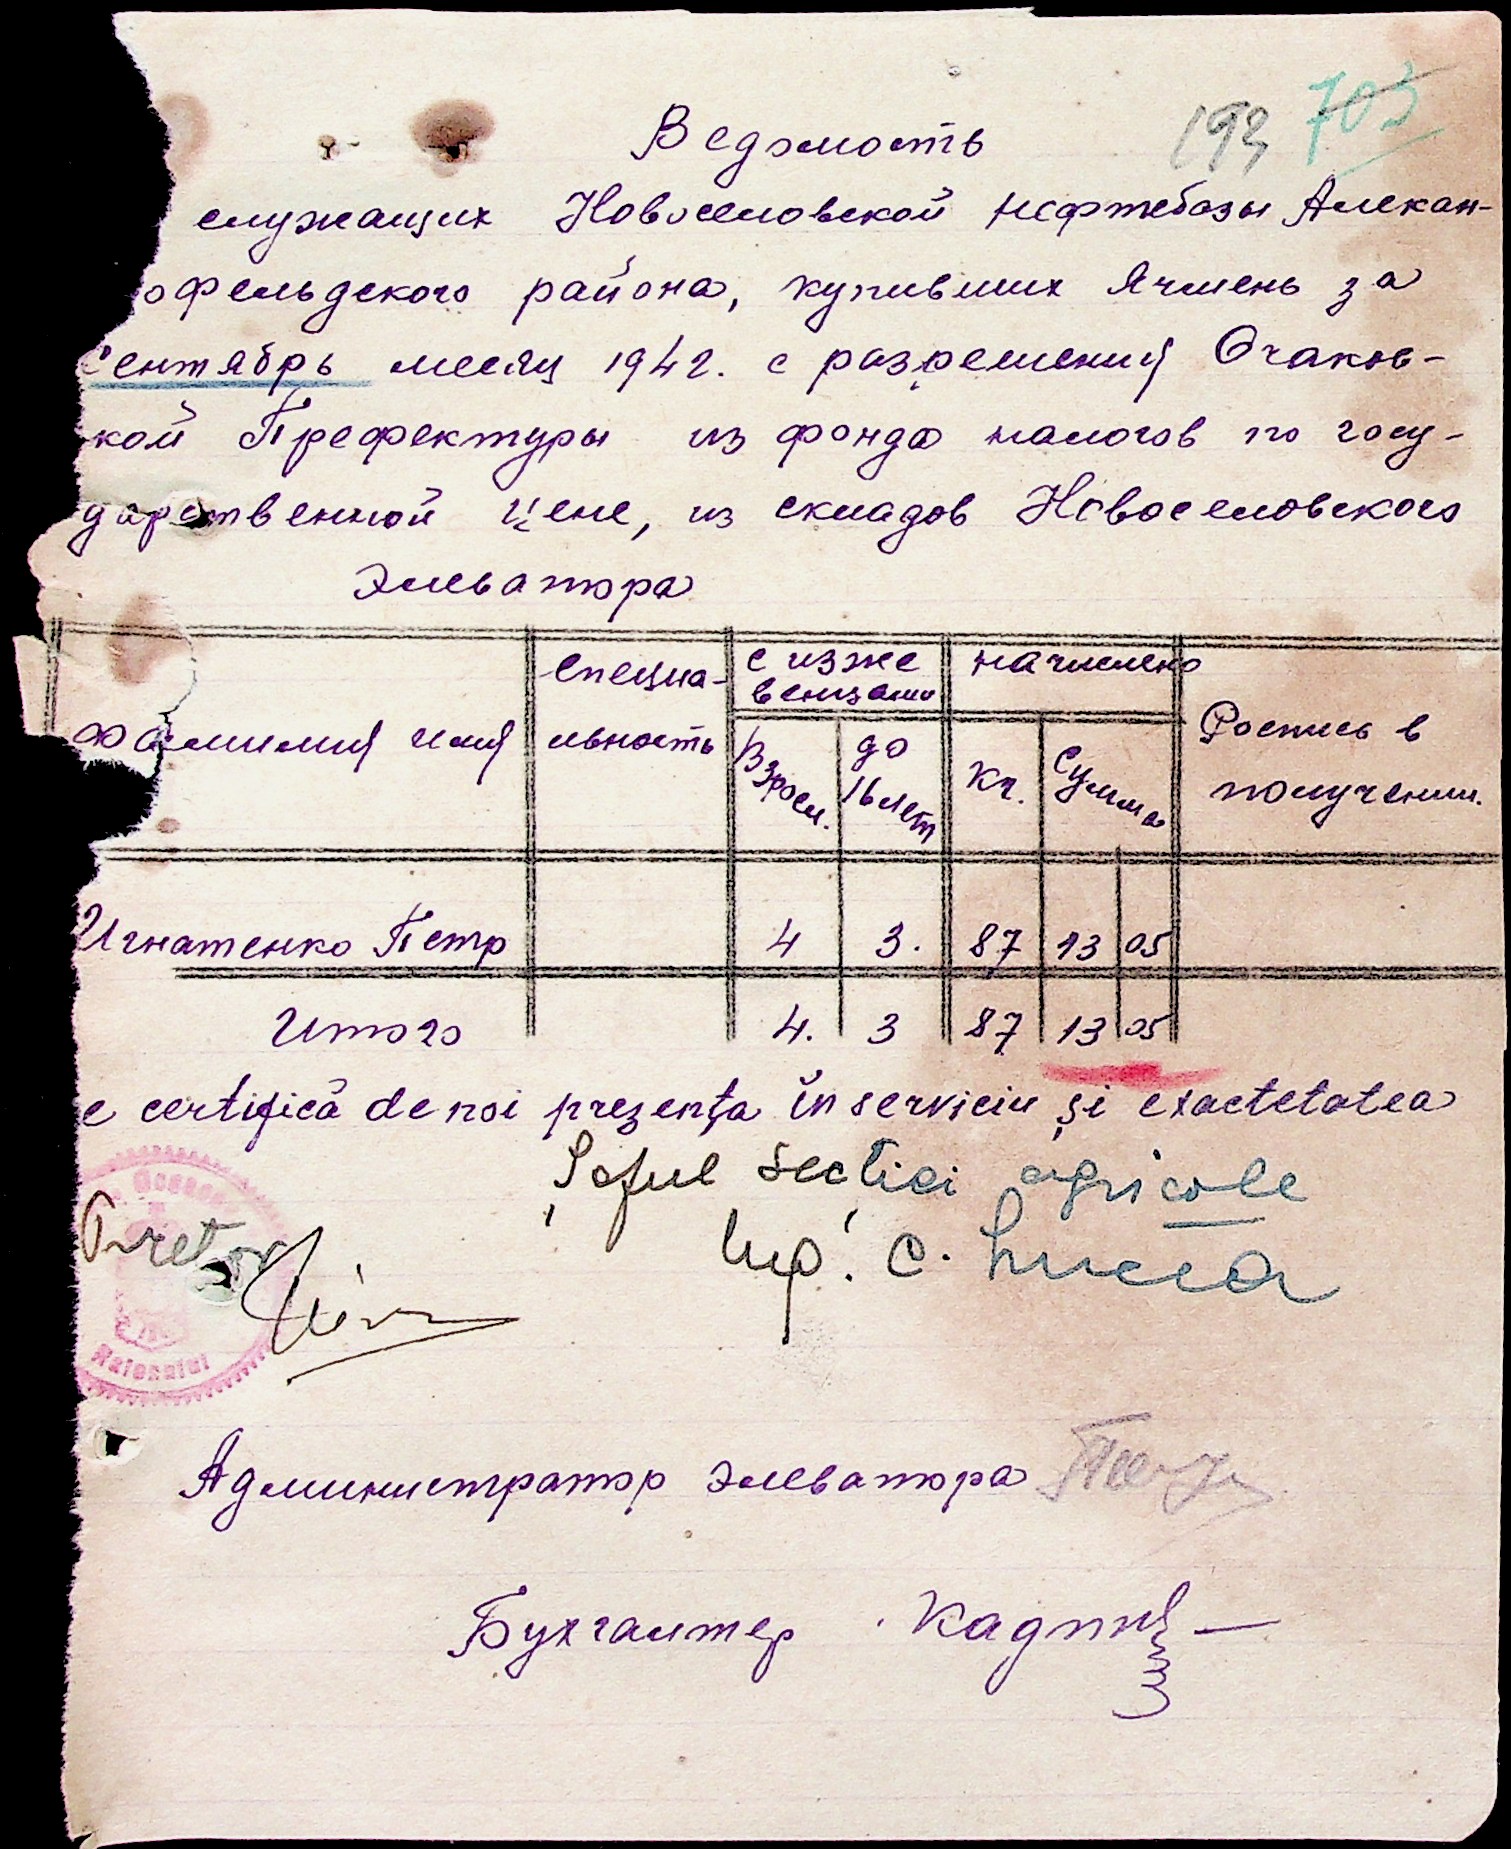 193 703
Ведомость
служащих Новоселовской нефтебазы Алекан-
офельдского района, купивших ячмень за
Сентябрь месяц 1942. с разрешения Очаков-
кой Префектуры из фонда налогов по госу-
дарственной цене, из складов Новоселовского
элеватора
Фамилия имя специа- льность с изже венцами начислено Роспись в получении.
Взросл. до 16 лет кг. Сумма
Игнатенко Петр 4 3. 87 13 05
Итого 4. 3 87 13 05
e certifică de noi prezența în serviciu și exactetatea
Șeful secției agricole
Pretor Ing. C.
Raionului
Администратор элеватора
Бухгалтер